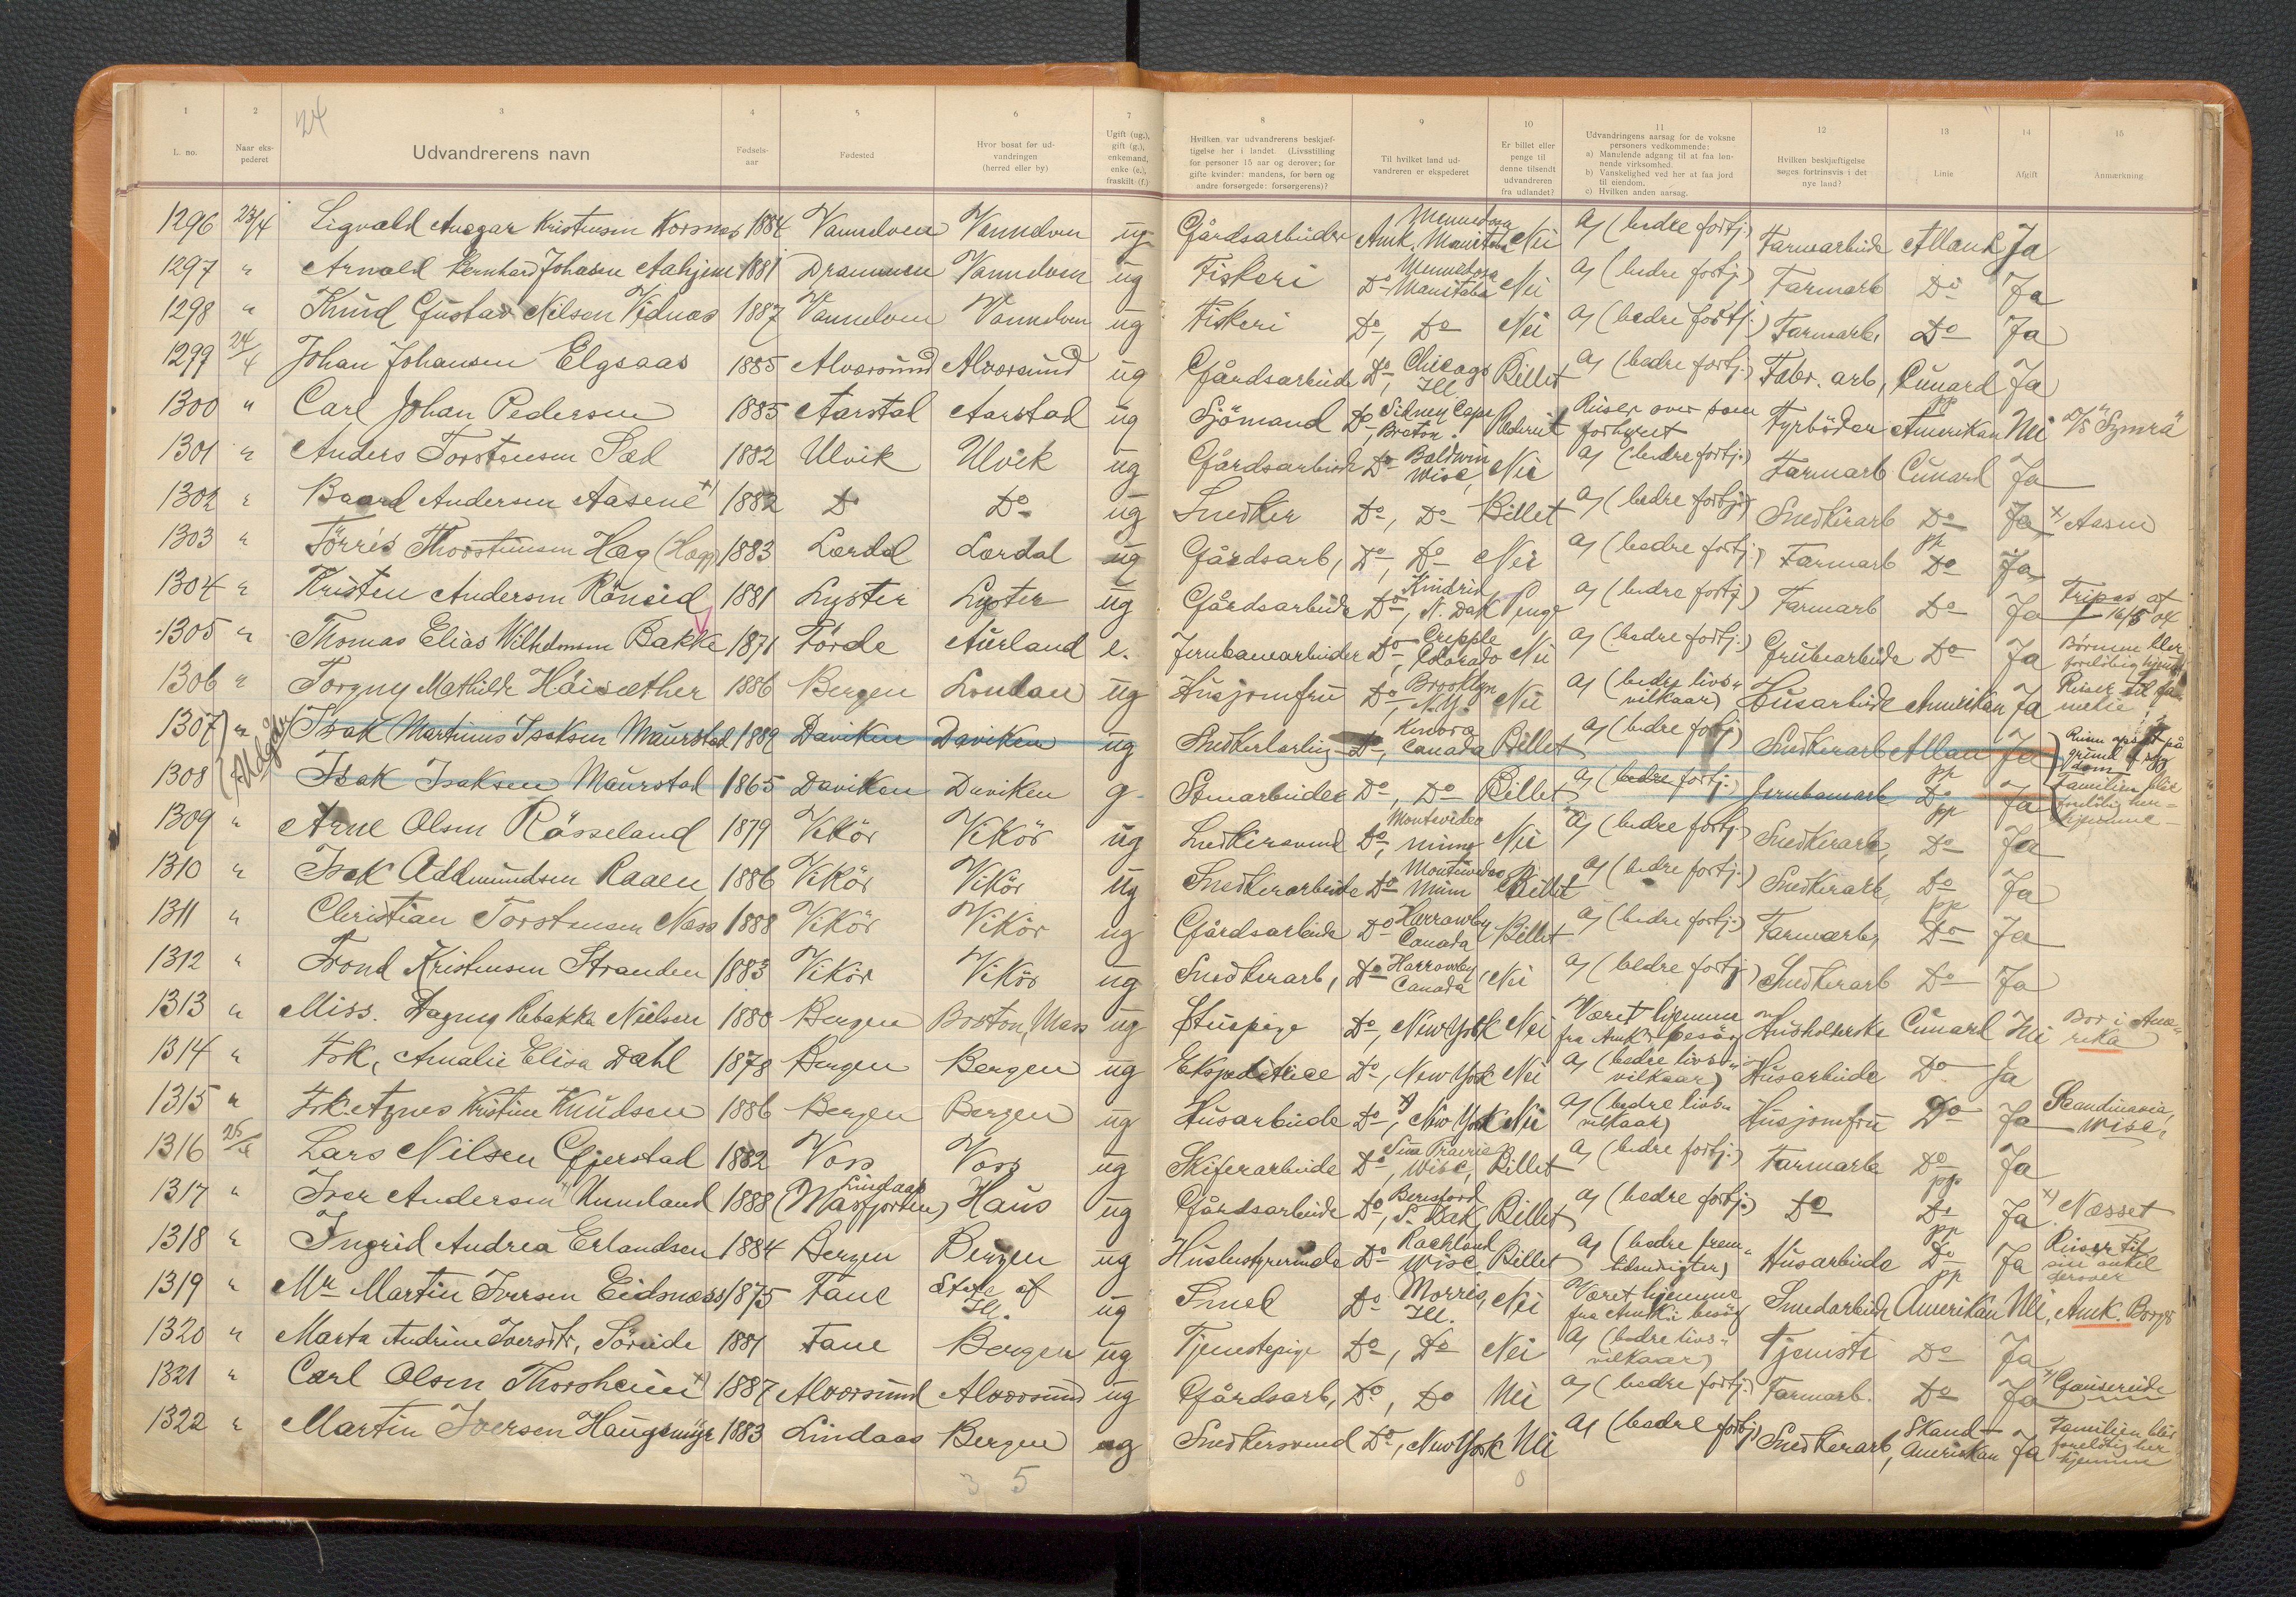 24
1 2 3 4 5 6 7 8 9 10 11 12 13 14 15
L. no. | Naar eks-pederet | Udvandrerens navn | Fødsels-aar | Fødested | Hvor bosat før ud-vandringen (herred eller by) | Ugift (ug.), gift (g.), enkemand, enke (e.), fraskilt (f.) | Hvilken var udvandrerens beskjæf-tigelse her i landet. (Livsstilling for personer 15 aar og derover; for gifte kvinder: mandens, for børn og andre forsørgede: forsørgerens)? | Til hvilket land ud-vandreren er ekspederet | Er billet eller penge til denne tilsendt udvandreren fra udlandet? | Udvandringens aarsag for de voksne personers vedkommende: a) Manglende adgang til at faa løn-nende virksomhed. b) Vanskelighed ved her at faa jord til eiendom. c) Hvilken anden aarsag. | Hvilken beskjæftigelse søges fortrinsvis i det nye land? | Linie | Afgift | Anmærkning
1296 23/4 Sigvald Ansgar Kristensen Korsnes 1884 Vannelven Vannelven ug Gårdsarbeider Amk. Mennedosa Manitoba Nei a) (bedre fortj.) Farmarbeide Allan L Ja
1297 " Arnold Bernhard Johasen Aahjem 1881 Drammen Vannelven ug Fiskeri Do Mennedosa Manitoba Nei a) (bedre fortj.) Farmarb Do Ja
1298 " Knud Gustav Nilsen Vidnes 1887 Vannelven Vannelven ug Fiskeri Do, Do Nei a) (bedre fortj.) Farmarb. Do Ja
1299 24/4 Johan Johansen Elgsaas 1885 Alversund Alversund ug Gårdsarbeide Do, Chicago Ill Billet a) (bedre fortj.) Fabr. arb, Cunard Ja
1300 " Carl Johan Pedersen 1885 Aarstad Aarstad ug Sjömand Do, Sidney Cape Breton. Rederiet Reiser over som forhyret Fyrböder pp Amerikan Nei D/S "Symra"
1301 " Anders Torstensen Sæd 1882 Ulvik Ulvik ug Gårdsarbeide Do Baldwin Wisc, Nei a) (bedre fortj.) Farmarb Cunard Ja
1302 " Baard Andersen Aasene x) 1882 Do Do ug Snedker Do, Do Billet a) (bedre fortj.) Snedkerarb Do Ja x) Aasen
1303 " Törris Thorstensen Hæg (Hægg) 1883 Lærdal Lærdal ug Gårdsarb, Do, Do Nei a) (bedre fortj.) Farmarb pp Do Ja
1304 " Kristen Andersen Röneid 1881 Lyster Lyster ug Gårdsarbeide Do, Kindrid N. Dak Penge a) (bedre fortj.) Farmarb Do Ja Tripas af 16/5 04
1305 " Thomas Elias Wilhelmsen Bakke 1871 Förde Aurland e. Jernbanearbeider Do, Cripple Colorado Nei a) (bedre fortj.) Grubearbeide Do Ja Börnene bler forelöbig hjemme
1306 " Torgny Mathilde Höisæther 1886 Bergen London ug Husjomfru Do, Brooklyn N.Y. Nei a) (bedre livs-vilkaar) Husarbeide Amerikan Ja Reiser til fa-
1307 " Isak Martinus Isaksen Maurstad 1889 Daviken Daviken ug Snedkerlærling Do, Kenora Canada Billet a) (bedre fortj.) Snedkerarb Allan Ja Reisen opsat på grund af syg-dom
1308 Isak Isaksen Maurstad 1865 Daviken Daviken g. Stenarbeider Do, Do Billet a) (bedre fortj.) Jernbanearb pp Do Ja Familien blir forelöbig her-hjemme
1309 " Arne Olsen Rösseland 1879 Vikör Vikör ug Snedkersvend Do, Montevideo Minn Nei a) (bedre fortj.) Snedkerarb, pp Do Ja
1310 " Isak Oddmundsen Raaen 1886 Vikör Vikör ug Snedkerarbeide Do Montevideo Minn Billet a) (bedre fortj.) Snedkerarb, Do Ja
1311 " Christian Torstensen Næss 1888 Vikör Vikör ug Gårdsarbeide Do Harrowby Canada Billet a) (bedre fortj.) Farmarb, pp Do Ja
1312 " Trond Kristensen Stranden 1883 Vikör Vikör ug Snedkerarb, Do Harrowby Canada Nei a) (bedre fortj.) Snedkerarb Do Ja
1313 " Miss. Dagny Rebekka Nielsen 1880 Bergen Boston, Mass ug Stuepige Do, New York Nei Været hjemme fra Amk. på besög Husholderske Cunard Nei Bor i Ame-rika
1314 " Frk, Amalie Elisa Dahl 1878 Bergen Bergen ug Ekspeditrice Do, New York Nei a) (bedre livs-vilkaar) Husarbeide Do Ja
1315 " Frk. Agnes Kristine Knudsen 1886 Bergen Bergen ug Husarbeide Do, x) New York Nei a) (bedre livs-vilkaar) Husjomfru Do Ja Scandinavia, Wisc,
1316 25/4 Lars Nilsen Gjerstad 1882 Voss Voss ug Skiferarbeide Do, Sun Prairie Wisc, Billet a) (bedre fortj.) Farmarb Do Ja
1317 " Iver Andersen Unneland 1888 Lindaas (Masfjorden) Haus ug Gårdsarbeide Do, Beresford S. Dak, Billet a) (bedre fortj.) Do pp Do Ja x) Næsset
1318 " Ingrid Andrea Erlandsen 1884 Bergen Bergen ug Husbestyrerinde Do Rockland Wisc, Billet a) (bedre frem-tidsudsigter) Husarbeide pp Do Ja Reiser til sin onkel derover
1319 " Mr Martin Iversen Eidsnæss 1875 Fane State of Ill. ug Smed Do Morris, Ill. Nei Været hjemme fra Amk. på besög Smedarbeide pp Amerikan Nei, Amk. Borger
1320 " Marta Andrine Iversdtr, Söreide 1881 Fane Bergen ug Tjenestepige Do, Do Nei a) (bedre livs-vilkaar) Tjeneste Do Ja
1321 " Carl Olsen Thorsheim x) 1887 Alversund Alversund ug Gårdsarb, Do, Do Nei a) (bedre fortj.) Farmarb. Do Ja x)
1322 " Martin Iversen Haugsmyr 1883 Lindaas Bergen ug Snedkersvend Do, New York Nei a) (bedre fortj.) Snedkerarb, Skand-Amerikan Ja Familien blir forelöbig her hjemme
3 5 8